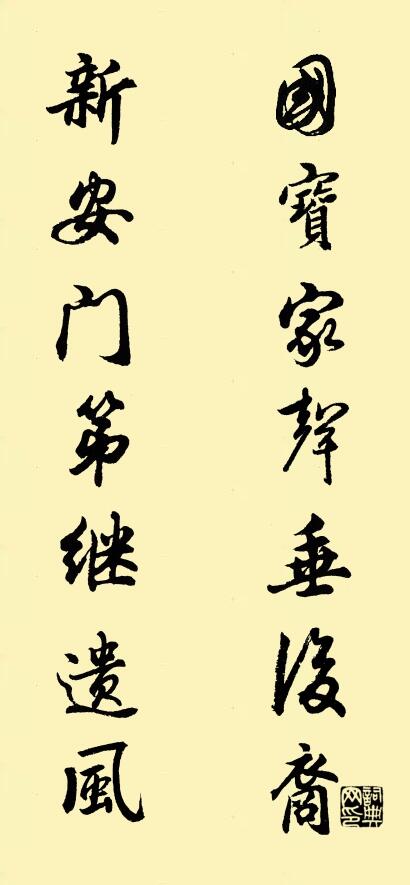 國寶家聲垂後裔
新安门第继遗風
詞典网印